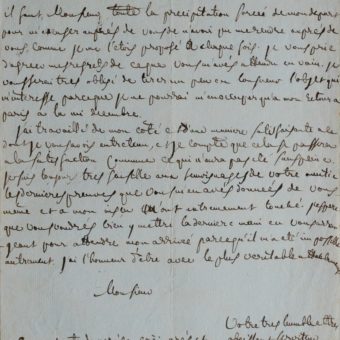 il faut, Monsieur, toute la precipitation forcée de mon depart
pour m'excuser aupres de vous de n'avoir pu me rendre aupres de
vous comme je me l'etois proposé à chaque fois. je vous prie
d'agreer mes regrets de ce que vous m'avés attendu en vain. je
vous serai tres obligé de tirer un peu en longueur l'objet qui
m'interesse parceque je ne pourrai m'occuper qu'a mon retour a
paris à la mi decembre.
J'ai travaillé de mon coté d'une maniere satisfaisante a la
dont je vous avois entretenu, et je compte que cela se passera
a la satisfaction commune ce qui n'aura pas eté sans peine.
je suis toujours tres sensible aux temoignages de votre amitié
les dernieres preuves que vous m'en avés données de vous
meme et a mon insçu m'ont extremement touché j'espere
que vous voudrés bien y mettre la derniere main en vous
geant pour attendre mon arrivée parcequ'il m'a eté impossible
autrement. j'ai l'honneur d'être avec le plus veritable
Monsieur
Votre tres humble et tres
obeissant serviteur